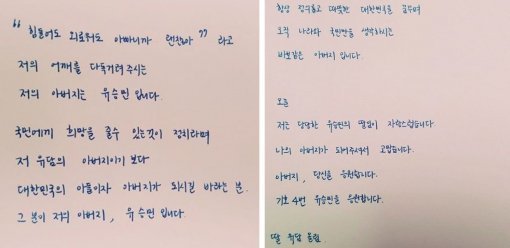 "힘들어도 외로워도 아빠니까 괜찮아" 라고
저의 어깨를 다독거려 주시는
저의 아버지는 유승민 입니다.
국민에게 희망을 줄수 있는것이 정치라며
저 유담의 아버지이기 보다
대한민국의 아들이자 아버지가 되시길 바라는 분.
그 분이 저의 아버지, 유승민 입니다.
항상 정의롭고 따뜻한 대한민국을 꿈꾸며
오직 나라와 국민만을 생각하시는
바보같은 아버지 입니다.
오늘
저는 당당한 유승민의 딸임이 자랑스럽습니다.
나의 아버지가 되어주셔서 고맙습니다.
아버지, 당신을 응원합니다.
기호 4번 유승민을 응원합니다.
딸 유담 올림